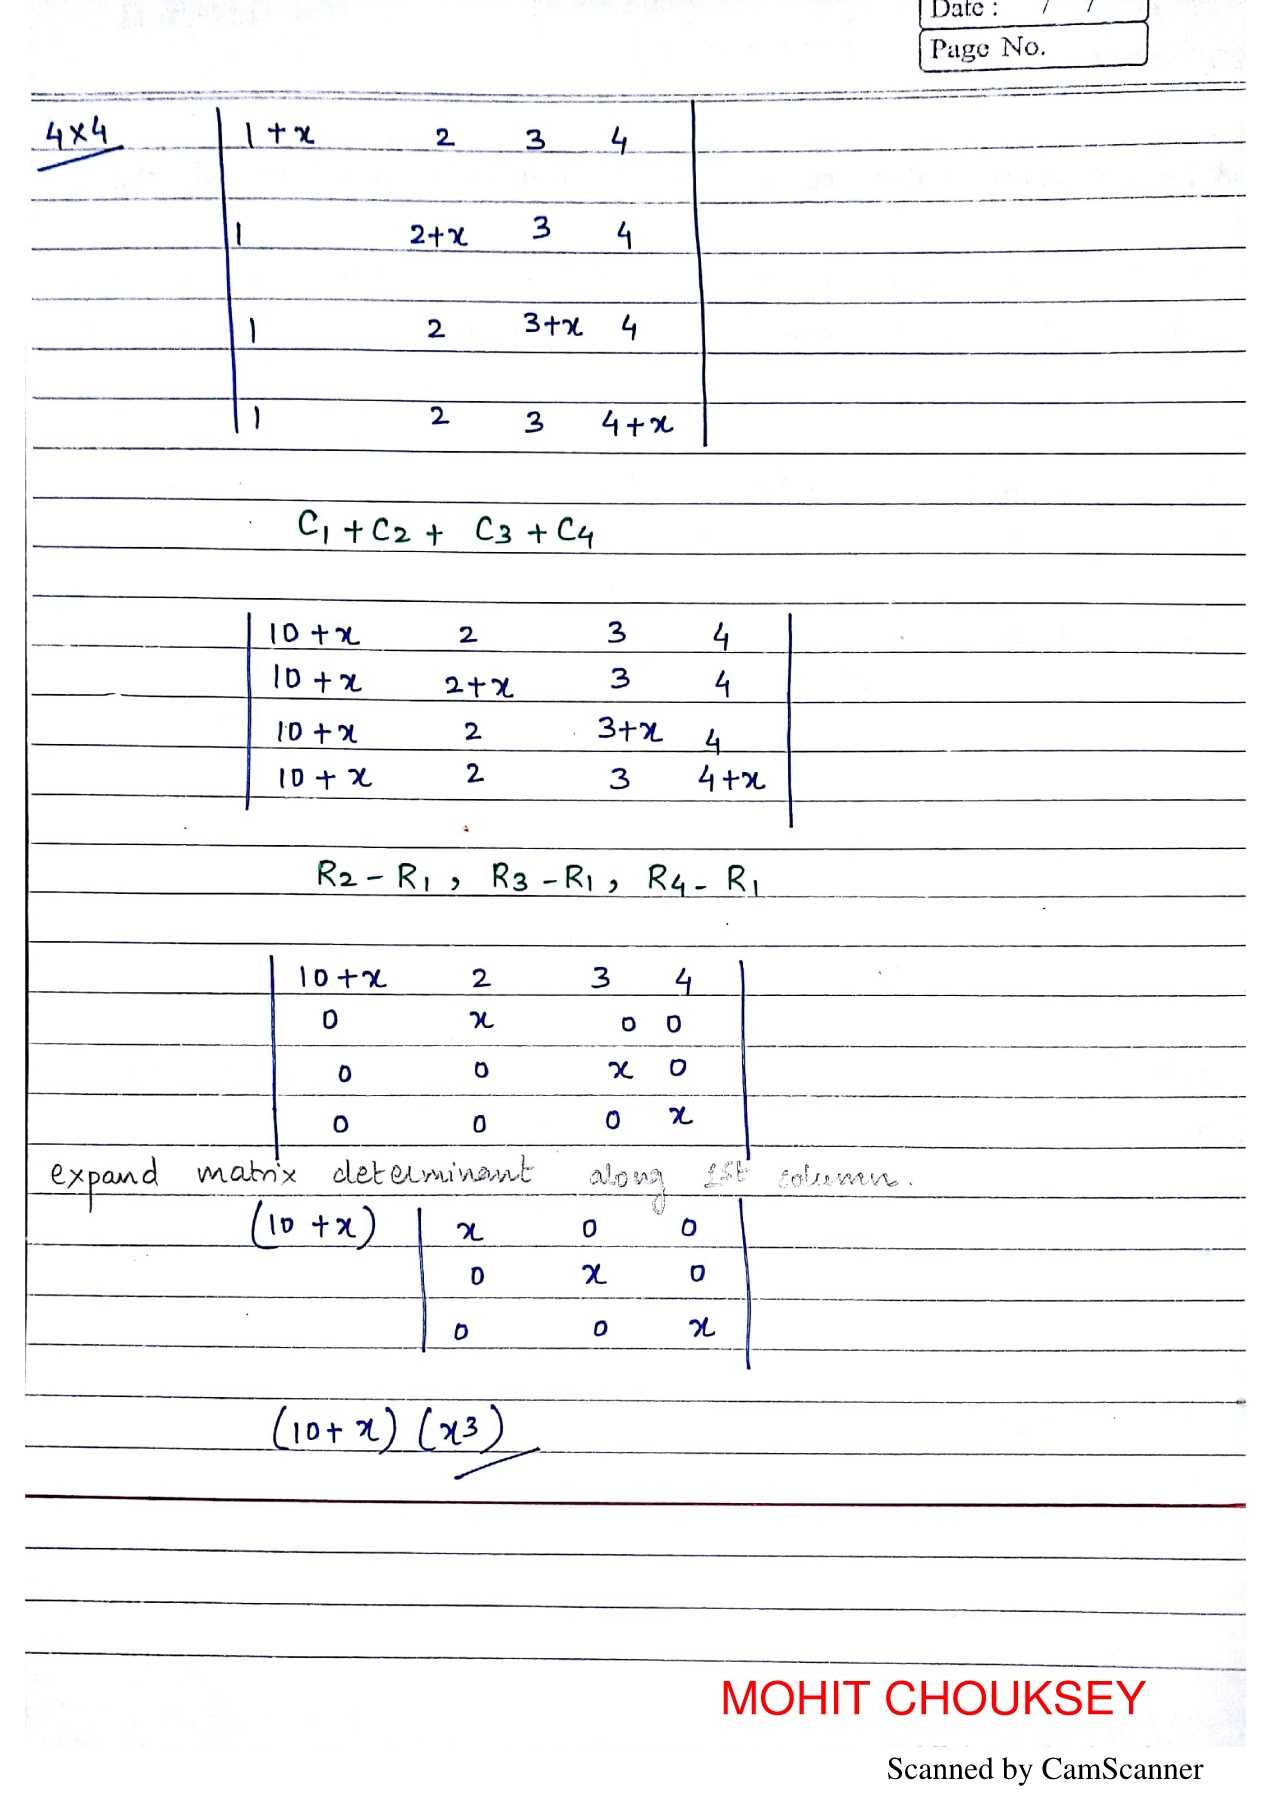 Date : / /
Page No.
4×4
1+x 2 3 4
1 2+x 3 4
1 2 3+x 4
1 2 3 4+x
C1 + C2 + C3 + C4
10+x 2 3 4
10+x 2+x 3 4
10+x 2 3+x 4
10+x 2 3 4+x
R2 - R1, R3 - R1, R4 - R1
10+x 2 3 4
0 x 0 0
0 0 x 0
0 0 0 x
expand matrix determinant along 1st column.
(10+x) | x 0 0 |
0 x 0
0 0 x
(10+x) (x3)
MOHIT CHOUKSEY
Scanned by CamScanner